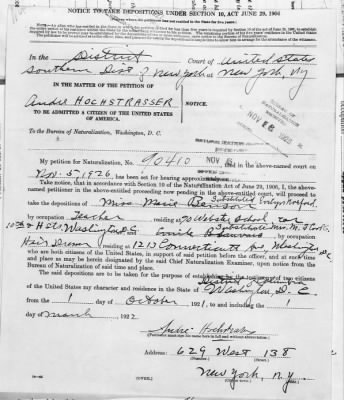 NOTICE TO TAKE DEPOSITIONS UNDER SECTION 10, ACT JUNE 29, 1906
In the District Court of United States
Southern Dist of New York New York Ny
IN THE MATTER OF THE PETITION OF
André HOCHSTRASSER
NOTICE.
TO BE ADMITTED A CITIZEN OF THE UNITED STATES
OF AMERICA.
To the Bureau of Naturalization, Washington, D. C.
My petition for Naturalization, No. 90410 in the above-named court on
Nov. 5, 1926, has been set for hearing approximately
Take notice, that in accordance with Section 10 of the Naturalization Act of June 29, 1906, I, the above-
named petitioner in the above-entitled proceeding now pending in the above-entitled court, will proceed to
take the depositions of Miss Marie
by occupation Teacher residing at Webster School cor
10th & H Sts Washington D.C. Emile by occupation
Hair Dresser residing at 1213 Connecticut Av Washington DC
who are both citizens of the United States, in support of said petition before the officer, and at such time
and place as may be herein designated by the said Chief Naturalization Examiner, upon notice from the
Bureau of Naturalization of said time and place.
The said depositions are to be taken for the purpose of establishing by the testimony of two citizens
of the United States my character and residence in the State of Washington, D. C.
from the 1 day of October, 1921, to and including the 1
day of March, 1922
André Hochstrasser
Address: 629 West 138
(Number.) (Street.)
New York, N.Y.